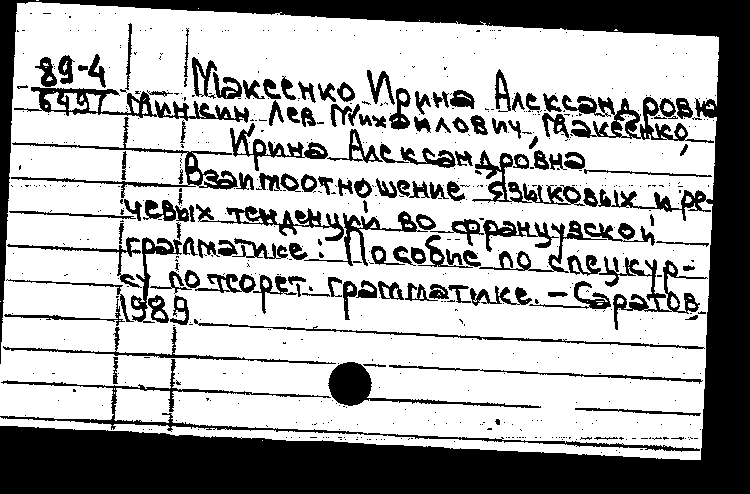 89-4
6497
Макеенко Ирина Александровна
Минкин Лев Михайлович, Макеенко
Ирина Александровна
Взаимоотношение языковых и ре-
чевых тенденций во французской
грамматике: Пособие по спецкур-
су по теорет. грамматике. – Саратов,
1989.